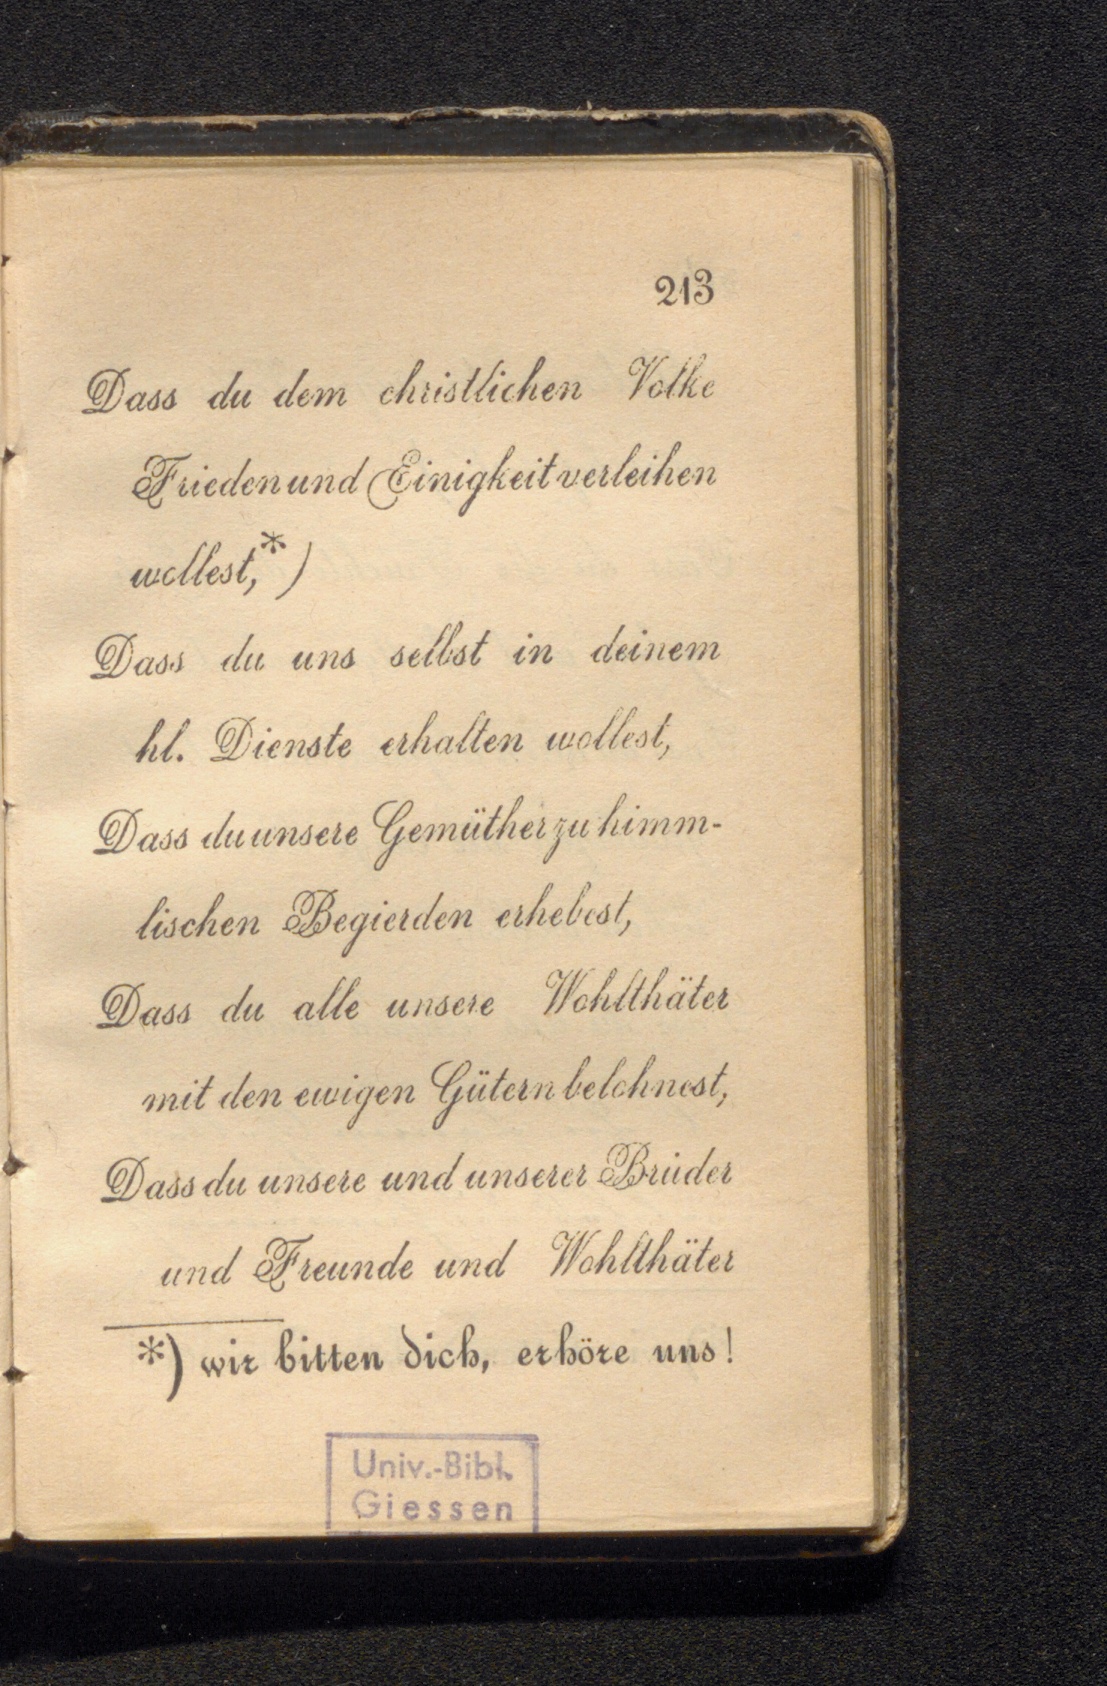 213
Dass du dem christlichen Volke
Frieden und Einigkeit verleihen
wollest,*)
Dass du uns selbst in deinem
hl. Dienste erhalten wollest,
Dass du unsere Gemüther zu himm-
lischen Begierden erhebest,
Dass du alle unsere Wohlthäter
mit den ewigen Gütern belohnest,
Dass du unsere und unserer Brüder
und Freunde und Wohlthäter
*) wir bitten dich, erhöre uns!
Univ.-Bibl.
Giessen